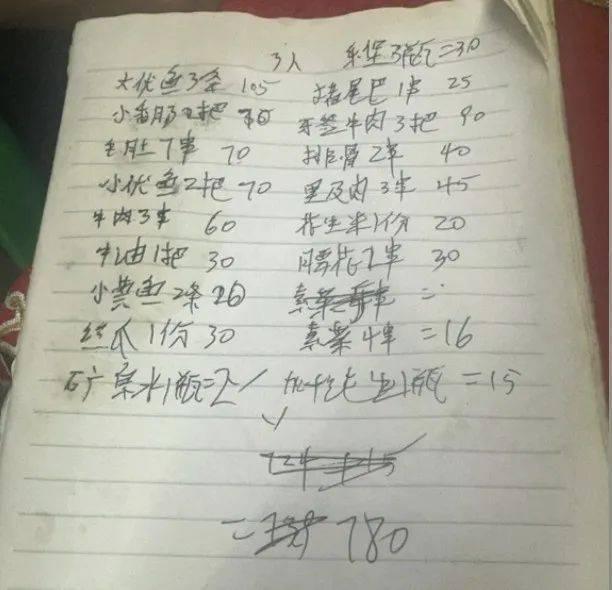 3人 乐堡3瓶=30
大优鱼3条 105 猪尾巴1串 25
小香肠2把 牙签牛肉3把 90
毛肚7串 70 排骨2串 40
小优鱼2把 70 里及肉3串 45
牛肉3串 60 花生米1份 20
牛油1把 30 腰花2串 30
小黄鱼2条 20 素菜
丝瓜1份 30 素菜4串 =16
矿泉水1瓶=2 1瓶 =15
= 780